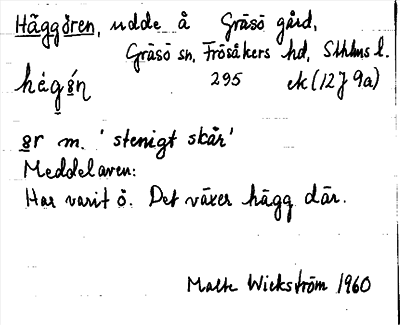 Häggören, udde å Gräsö gård,
Gräsö sn, Frösåkers hd, Sthlms l.
295 ek (12J 9a)
or m. 'stenigt skär'
Meddelaren:
Har varit ö. Det växer hägg där.
Malte Wickström 1960